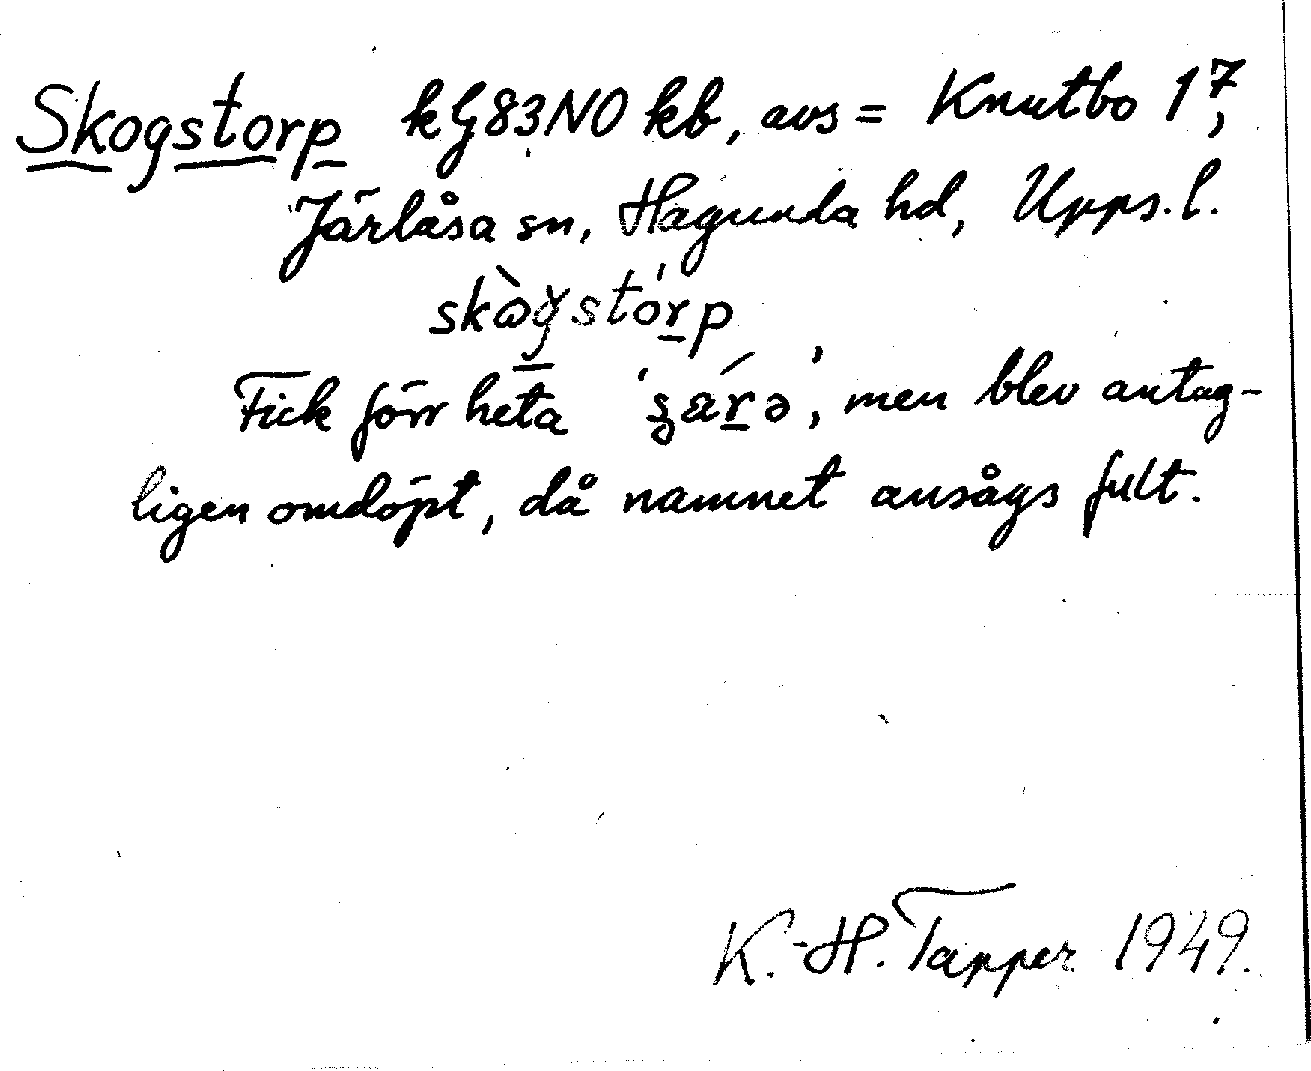 Skogstorp kG83NO kb, avs = Knutbo 1⁷,
Järlåsa sn, Hagunda hd, Upps.l.
skògstórp
Fick förr heta ' ', men blev antag-
ligen omdöpt, då namnet ansågs fult.
K.-H. Tapper 1949.